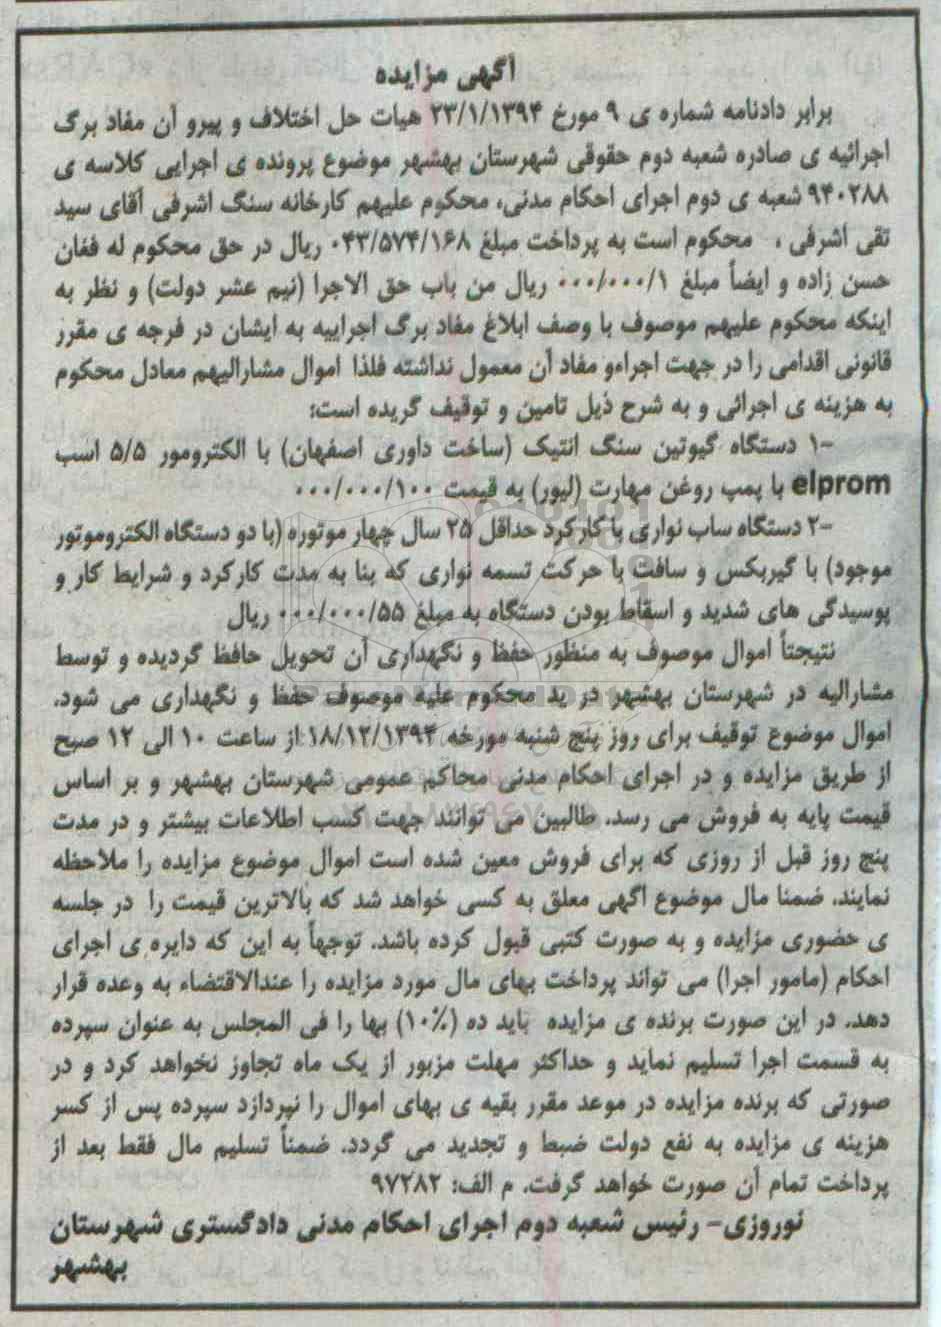 آگهی مزایده
برابر دادنامه شماره ی ۹ مورخ ۲۳/۱/۱۳۹۴ هیات حل اختلاف و پیرو آن مفاد برگ
اجرائیه ی صادره شعبه دوم حقوقی شهرستان بهشهر موضوع پرونده ی اجرایی کلاسه ی
۹۴۰۲۸۸ شعبه ی دوم اجرای احکام مدنی، محکوم علیهم کارخانه سنگ اشرفی آقای سید
تقی اشرفی ، محکوم است به پرداخت مبلغ ۰۴۳/۵۷۴/۱۶۸ ریال در حق محکوم له فغان
حسن زاده و ایضاً مبلغ ۰۰۰/۰۰۰/۱ ریال من باب حق الاجرا (نیم عشر دولت) و نظر به
اینکه محکوم علیهم موصوف با وصف ابلاغ مفاد برگ اجراییه به ایشان در فرجه ی مقرر
قانونی اقدامی را در جهت اجراءو مفاد آن معمول نداشته فلذا اموال مشارالیهم معادل محکوم
به هزینه ی اجرائی و به شرح ذیل تامین و توقیف گریده است:
-۱ دستگاه گیوتین سنگ انتیک (ساخت داوری اصفهان) با الکترومور ۵/۵ اسب
elprom با پمپ روغن مهارت (لیور) به قیمت ۰۰۰/۰۰۰/۱۰۰
-۲ دستگاه ساب نواری با کارکرد حداقل ۲۵ سال چهار موتوره (با دو دستگاه الکتروموتور
موجود) با گیربکس و سافت با حرکت تسمه نواری که بنا به مدت کارکرد و شرایط کار و
پوسیدگی های شدید و اسقاط بودن دستگاه به مبلغ ۰۰۰/۰۰۰/۵۵ ریال
نتیجتاً اموال موصوف به منظور حفظ و نگهداری آن تحویل حافظ گردیده و توسط
مشارالیه در شهرستان بهشهر در ید محکوم علیه موصوف حفظ و نگهداری می شود.
اموال موضوع توقیف برای روز پنج شنبه مورخه ۱۸/۱۲/۱۳۹۴ از ساعت ۱۰ الی ۱۲ صبح
از طریق مزایده و در اجرای احکام مدنی محاکم عمومی شهرستان بهشهر و بر اساس
قیمت پایه به فروش می رسد. طالبین می توانند جهت کسب اطلاعات بیشتر و در مدت
پنج روز قبل از روزی که برای فروش معین شده است اموال موضوع مزایده را ملاحظه
نمایند. ضمنا مال موضوع اگهی معلق به کسی خواهد شد که بالاترین قیمت را در جلسه
ی حضوری مزایده و به صورت کتبی قبول کرده باشد. توجهاً به این که دایره ی اجرای
احکام (مامور اجرا) می تواند پرداخت بهای مال مورد مزایده را عندالاقتضاء به وعده قرار
دهد. در این صورت برنده ی مزایده باید ده (۱۰٪) بها را فی المجلس به عنوان سپرده
به قسمت اجرا تسلیم نماید و حداکثر مهلت مزبور از یک ماه تجاوز نخواهد کرد و در
صورتی که برنده مزایده در موعد مقرر بقیه ی بهای اموال را نپردازد سپرده پس از کسر
هزینه ی مزایده به نفع دولت ضبط و تجدید می گردد. ضمناً تسلیم مال فقط بعد از
پرداخت تمام آن صورت خواهد گرفت. م الف: ۹۷۲۸۲
نوروزی- رئیس شعبه دوم اجرای احکام مدنی دادگستری شهرستان
بهشهر